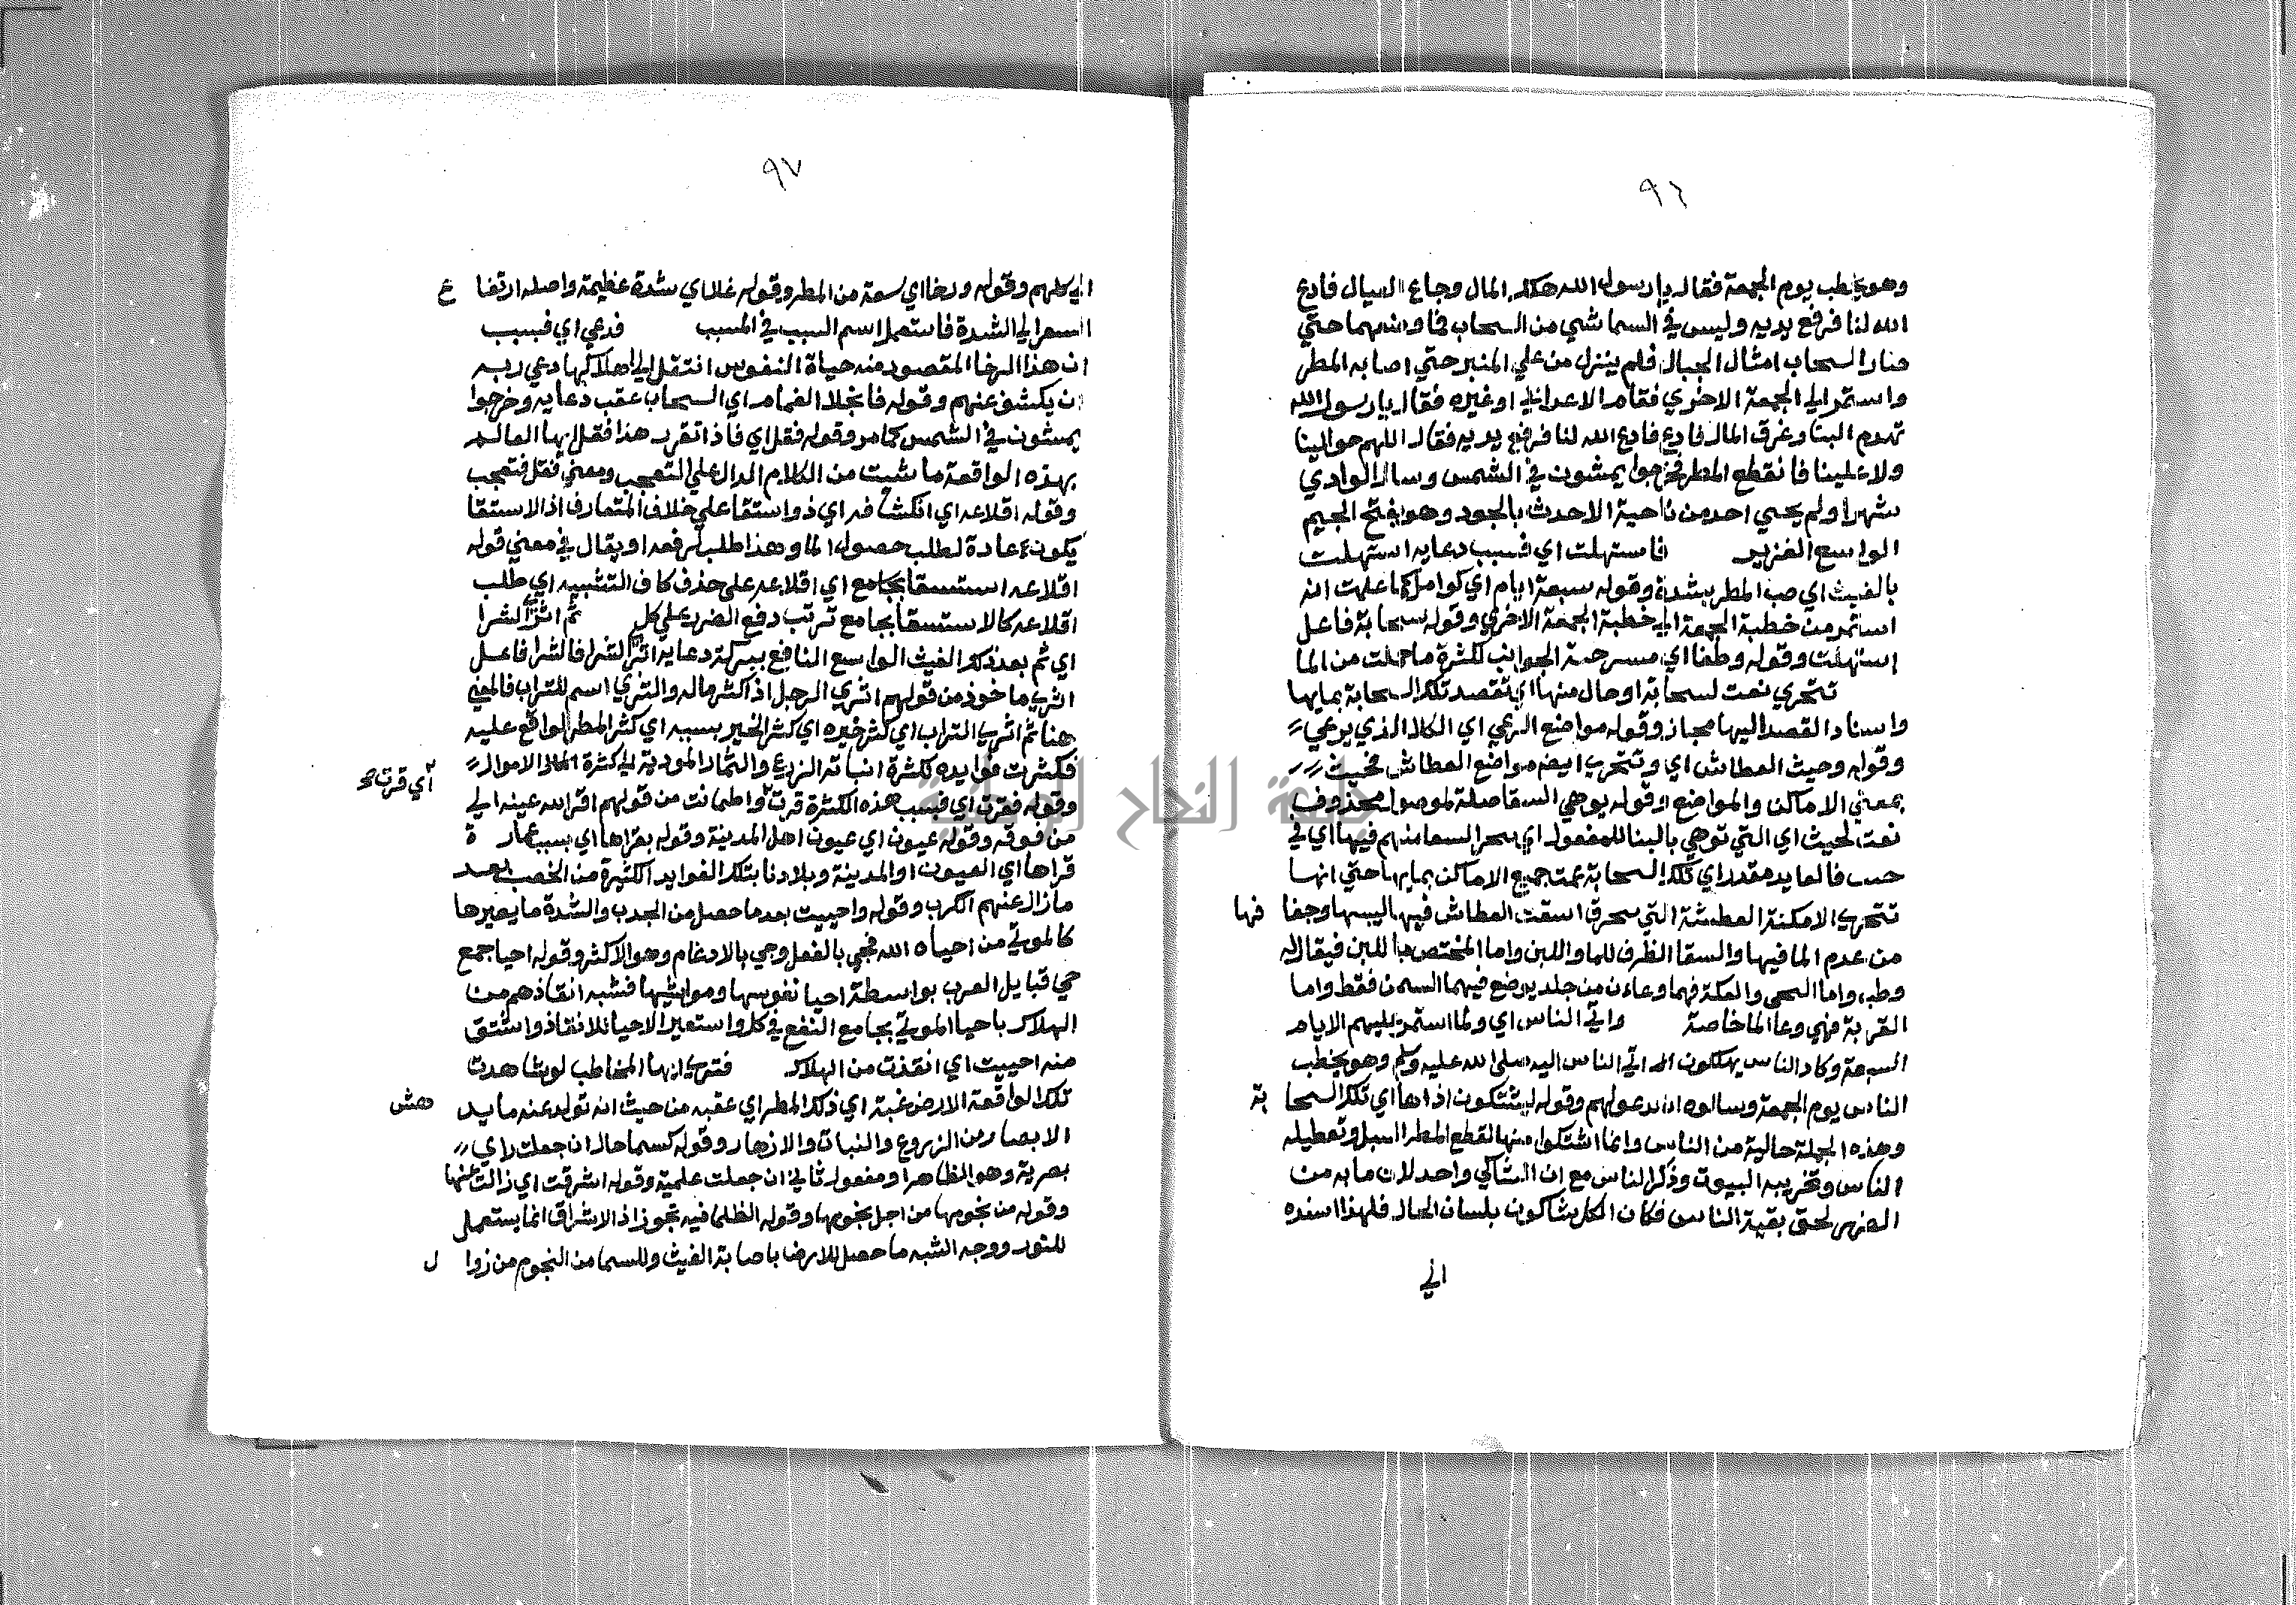 ٩٦
وهو يخطب يوم الجمعة فقال يا رسول الله هلك المال وجاع العيال فادع
الله لنا فرفع يديه وليس في السما شي من السحاب فما وضعهما حتي
صار السحاب امثال الجبال فلم ينزل من علي المنبر حتي اصابه المطر
واستمر الي الجمعة الاخري فقام الاعرابي او غيره فقال يا رسول الله
تهدم البنا وغرق المال فادع فادع الله لنا فرفع يديه فقال اللهم حوالينا
ولا علينا فانقطع المطر فخرجوا يمشون في الشمس وسال الوادي
شهرا ولم يجي احد من ناحية الاحدث بالجود وهو بفتح الجيم
الواسع الغزير فاستهلت اي فبسبب دعايه استهلت
بالغيث اي صب المطر بشدة وقوله سبعة ايام اي كوامل كما علمت انه
استمر من خطبة الجمعة الي خطبة الجمعة الاخري وقوله سحابة فاعل
استهلت وقوله وطفا اي مسرحة الجوانب لكثرة ما حملت من الما
تتحري نعت لسحابة او حال منها اي تقصد تلك السحابة بمايها
واسناد القصد اليها مجاز وقوله مواضع الرعي اي الكلا الذي يرعي
وقوله وحيث العطاش اي وتتحري ايضه مواضع العطاش فحيث
بمعني الاماكن والمواضع وقوله يوهي السقا صلة لموصول محذوف
نعت لحيث اي التي توهي بالبنا للمفعول اي السقا منهم فيها اي في
حيث فالعايد مقدر اي تلك السحابة عمت جميع الاماكن بمايها حتي انها
تتحري الامكنة العطشة التي اسقت العطاش فيها ليبسها وجفا فها
من عدم الما فيها والسقا الظرف للما واللبن واما المختص باللبن فيقال له
وطب واما النحي والعكة فهما وعاءن من جلد يوضع فيهما السمن فقط واما
القربة فهي وعا الما خاصة واتي الناس اي ولما استمر عليهم الايام
السبعة وكاد الناس يهلكون اتي الناس اليه صلي الله عليه وسلم وهو يخطب
الناس يوم الجمعة وسالوه ان يدعو لهم وقوله يشتكون اذاها اي تلك السحا بة
وهذه الجملة حالية من الناس وانما اشتكوا منها لقطع المطر السبل وتعطيله
الناس وتخريبه البيوت وذكر الناس مع ان الشاكي واحد لان ما به من
الضرر لحق بقية الناس فكان الكل شاكون بلسان الحال فلهذا اسنده
الي
٩٧
الي كلهم وقوله ورخا اي سعة من المطر وقوله غلا اي شدة عظيمة واصله ارتفا ع
السعر الي الشدة فاستعمل اسم السبب في المسبب فدعي اي فبسبب
ان هذا الرخا المقصود منه حياة النفوس انتقل الي اهلاكها دعي ربه
ان يكشف عنهم وقوله فانجلا الغمام اي السحاب عقب دعايه وخرجوا
يمشون في الشمس كما مر وقوله فقل اي فاذا تقرر هذا فقل ايها العالم
بهذه الواقعة ما شيت من الكلام الدال علي التعجب ومعني فقل فتعجب
وقوله اقلاعه اي انكشافه اي ذو استقا علي خلاف المتعارف اذ الاستقا
يكون عادة لطلب حصول الما وهذا طلب لرفعه او يقال في معني قوله
اقلاعه استسقا بجامع اي اقلاعه علي حذف كاف التشبيه اي طلب
اقلاعه كالاستسقا بجامع ترتب دفع الضرر علي كل ثم اثرا الثرا
اي ثم بعد ذلك الغيث الواسع النافع ببركة دعايه اثرا الثرا فالثرا فاعل
اثري ماخوذ من قولهم اثري الرجل اذا كثر ماله والثري اسم للتراب فالمعني
هنا ثم اثري التراب اي كثر خيره اي كثر الخير بسببه اي كثر المطر الواقع عليه
فكثرت فوايده لكثرة انباته الزرع والثمار المودية الي كثرة الاموال
وقوله فقرت اي فبسبب هذه الكثرة قرت واطمانت من قولهم اقر الله عينه الي
اي قرت صح
من فوقه وقوله عيون اي عيون اهل المدينة وقوله بقراها اي بسبب عمار ة
قراها اي العيون او المدينة وبلادنا بتلك الفوايد الكثيرة من الخصب بعد
ما زال عنهم الكرب وقوله واحييت بعد ما حصل من الجدب والشدة ما يصيرها
كالموتي من احياه الله فحيي بالفعل وحي بالادغام وهو الاكثر وقوله احيا جمع
حي قبايل العرب بواسطة احيا نفوسها ومواشيها فشبه انقاذهم من
الهلاك باحيا الموتي بجامع النفع في كل واستعير الاحيا للانقاذ واشتق
منه احييت اي انقذت من الهلاك فتري ايها المخاطب لو شاهدت
تلك الواقعة الارض غبه اي ذلك المطر اي عقبه من حيث انه تولد عنه ما يد هش
الابصار من الزروع والنبات والازهار وقوله كسما حال ان جعلت راي
بصرية وهو الظاهر او مفعول ثاني ان جعلت علمية وقوله اشرقت اي زالت عنها
وقوله من نجومها من اجل نجومها وقوله الظلما فيه تجوز اذ الاشراق انما يستعمل
للنور ووجه الشبه ما حصل للارض باصابة الغيث وللسما من النجوم من زوا ل
جامعة النجاح الوطنية